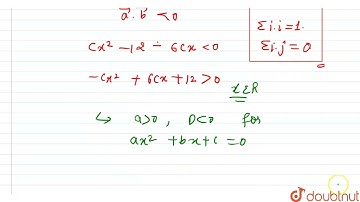 a⃗ . b⃗ < 0
Cx² - 12 - 6Cx < 0
-Cx² + 6Cx + 12 > 0
x ∈ R
↳ a>0 , D<0 for
ax² + bx + c = 0
Σi.i = 1.
Σi.j = 0
doubtnut